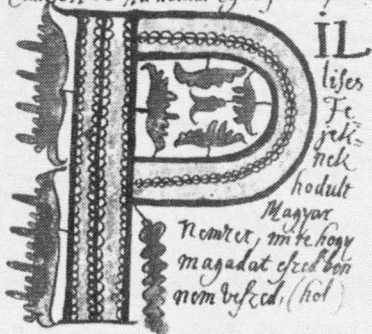 PIL
lises
Fe
jek=
nek
hodult
Magyar
Nemzet, mire hogy
magadat eszed ben
nem veszed, (hol)